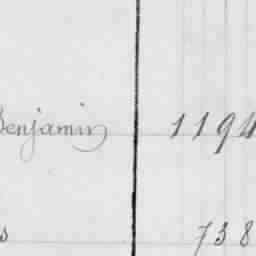 Benjamin 1194
s 738